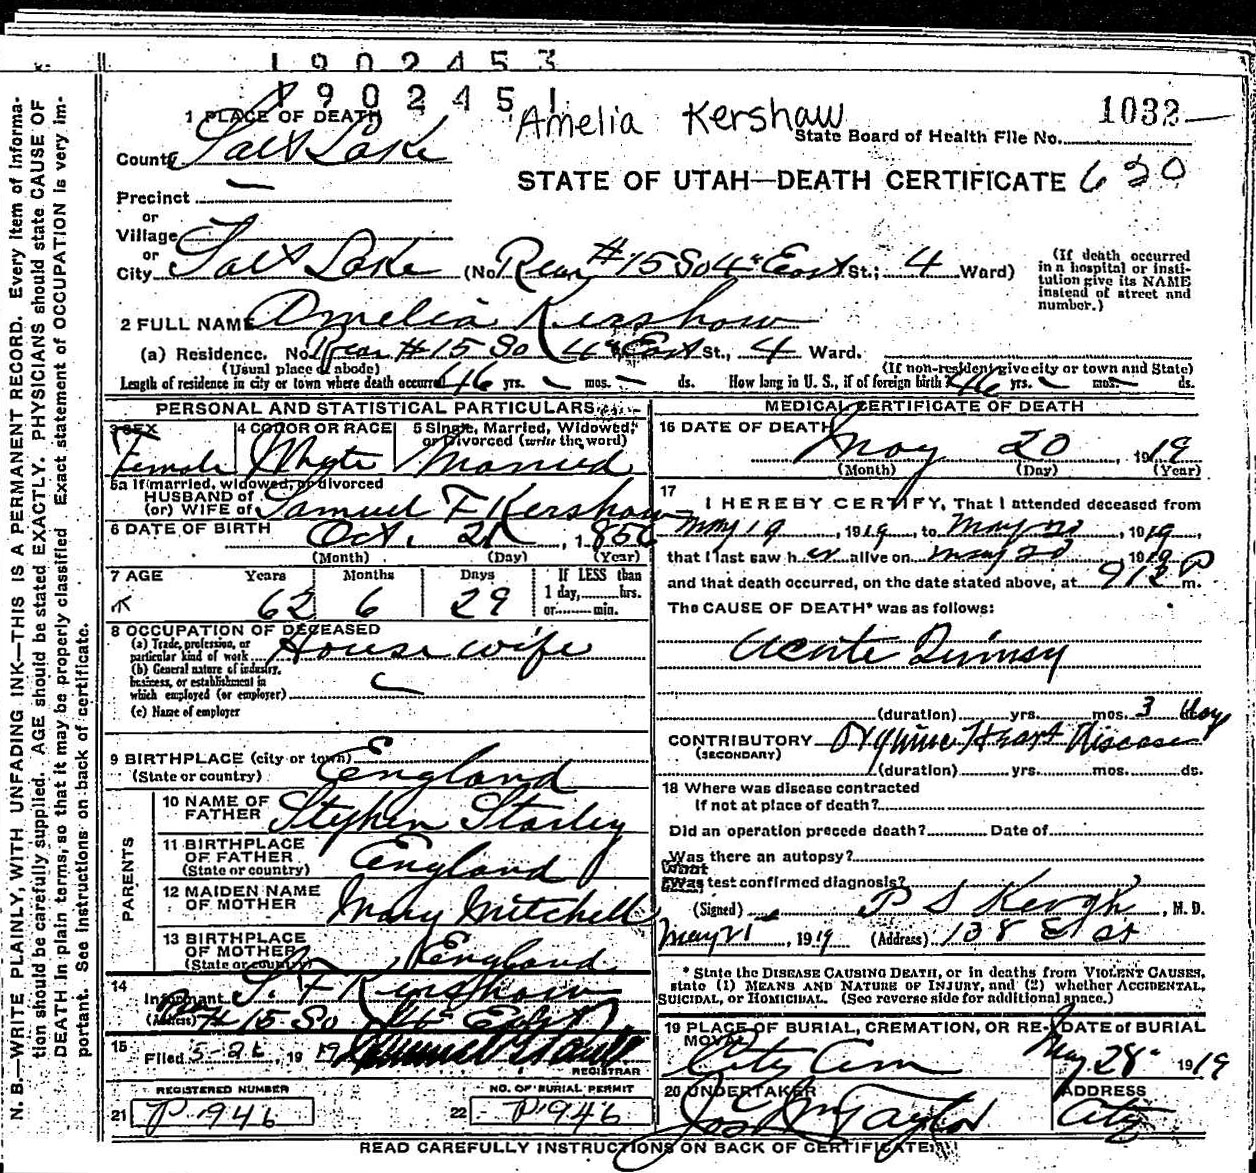 1902453
1902451
Amelia Kershaw
1032
1 PLACE OF DEATH
State Board of Health File No.
County Salt Lake
STATE OF UTAH—DEATH CERTIFICATE 630
Precinct
or
Village
or
City Salt Lake (No Rear #15 So 4th East St.; 4 Ward)
(If death occurred in a hospital or institution give its NAME instead of street and number.)
2 FULL NAME Amelia Kershaw
(a) Residence. No. Rear #15 So 4th East St., 4 Ward.
(Usual place of abode) (If non-resident give city or town and State)
Length of residence in city or town where death occurred 46 yrs. — mos. — ds. How long in U. S., if of foreign birth 46 yrs. — mos. — ds.
PERSONAL AND STATISTICAL PARTICULARS
3 SEX Female
4 COLOR OR RACE Whyte
5 Single, Married, Widowed, or Divorced (write the word) Married
5a If married, widowed, or divorced
HUSBAND of
(or) WIFE of Samuel F Kershaw
6 DATE OF BIRTH Oct. 21, 1856
(Month) (Day) (Year)
7 AGE Years Months Days If LESS than
62 6 29 1 day, hrs.
or min.
8 OCCUPATION OF DECEASED
(a) Trade, profession, or
particular kind of work House wife
(b) General nature of industry,
business, or establishment in
which employed (or employer)
(c) Name of employer
9 BIRTHPLACE (city or town)
(State or country) England
PARENTS
10 NAME OF
FATHER Stephen Starley
11 BIRTHPLACE
OF FATHER
(State or country) England
12 MAIDEN NAME
OF MOTHER Mary Mitchell
13 BIRTHPLACE
OF MOTHER
(State or country) England
14
Informant S. F Kershaw
(Address) Rear # 15 So 4th East
15 Filed 5-26, 1919
REGISTRAR
REGISTERED NUMBER
21 P 946
NO. OF BURIAL PERMIT
22 P 946
MEDICAL CERTIFICATE OF DEATH
16 DATE OF DEATH
May 20 1919
(Month) (Day) (Year)
17
I HEREBY CERTIFY, That I attended deceased from
May 19, 1919, to May 20, 1919,
that I last saw her alive on May 20 1919
and that death occurred, on the date stated above, at 912 P m.
The CAUSE OF DEATH* was as follows:
Acute Quinsy
(duration) yrs. mos. 3 days
CONTRIBUTORY Organic Heart Disease
(SECONDARY)
(duration) yrs. mos. ds.
18 Where was disease contracted
If not at place of death?
Did an operation precede death? Date of
Was there an autopsy?
What
Was test confirmed diagnosis?
(Signed) P S Keogh, M. D.
May 21, 1919 (Address) 138 E
* State the DISEASE CAUSING DEATH, or in deaths from VIOLENT CAUSES,
state (1) MEANS AND NATURE OF INJURY, and (2) whether ACCIDENTAL,
SUICIDAL, or HOMICIDAL. (See reverse side for additional space.)
19 PLACE OF BURIAL, CREMATION, OR RE-
MOVAL City Cem
DATE of BURIAL
May 28 1919
20 UNDERTAKER
Jos Wm Taylor
ADDRESS
City
READ CAREFULLY INSTRUCTIONS ON BACK OF CERTIFICATE
N. B.—WRITE PLAINLY, WITH UNFADING INK—THIS IS A PERMANENT RECORD. Every item of informa-
tion should be carefully supplied. AGE should be stated EXACTLY. PHYSICIANS should state CAUSE OF
DEATH in plain terms, so that it may be properly classified. Exact statement of OCCUPATION is very im-
portant. See instructions on back of certificate.